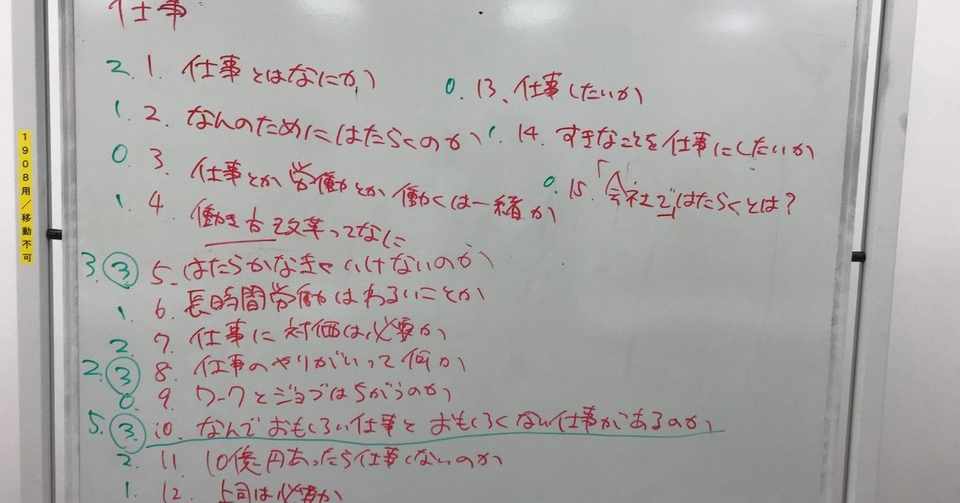 仕事
2. 1. 仕事とはなにか
1. 2. なんのためにはたらくのか
0. 3. 仕事とか労働とか働くは一緒か
1. 4. 働き方改革ってなに
3. ③ 5. はたらかなきゃいけないのか
1. 6. 長時間労働はわるいことか
2. 7. 仕事に対価は必要か
2. ③ 8. 仕事のやりがいって何か
0. 9. ワークとジョブはちがうのか
5. ③ 10. なんでおもしろい仕事とおもしろくない仕事があるのか
2. 11. 10億円あったら仕事しないのか
1. 12. 上司は必要か
0. 13. 仕事したいか
1. 14. すきなことを仕事にしたいか
0. 15. 「会社で」はたらくとは?
1908用/移動不可